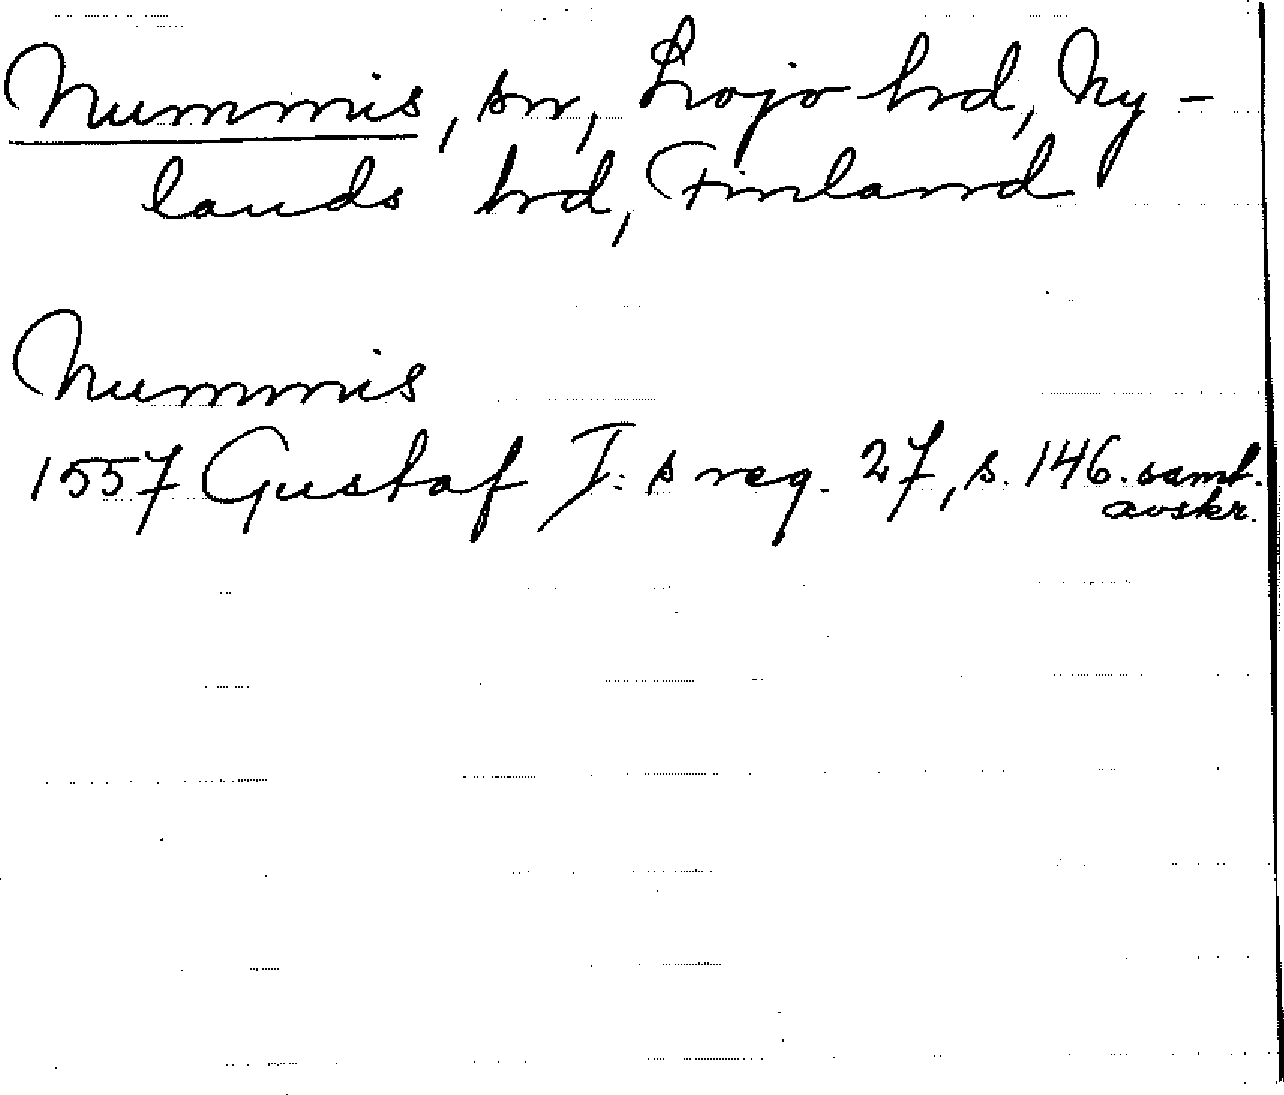 Nummis, sn, Lojo hrd, Ny-
lands hrd, Finland
Nummis
1557 Gustaf I:s reg. 27, s. 146. samt.
avskr.